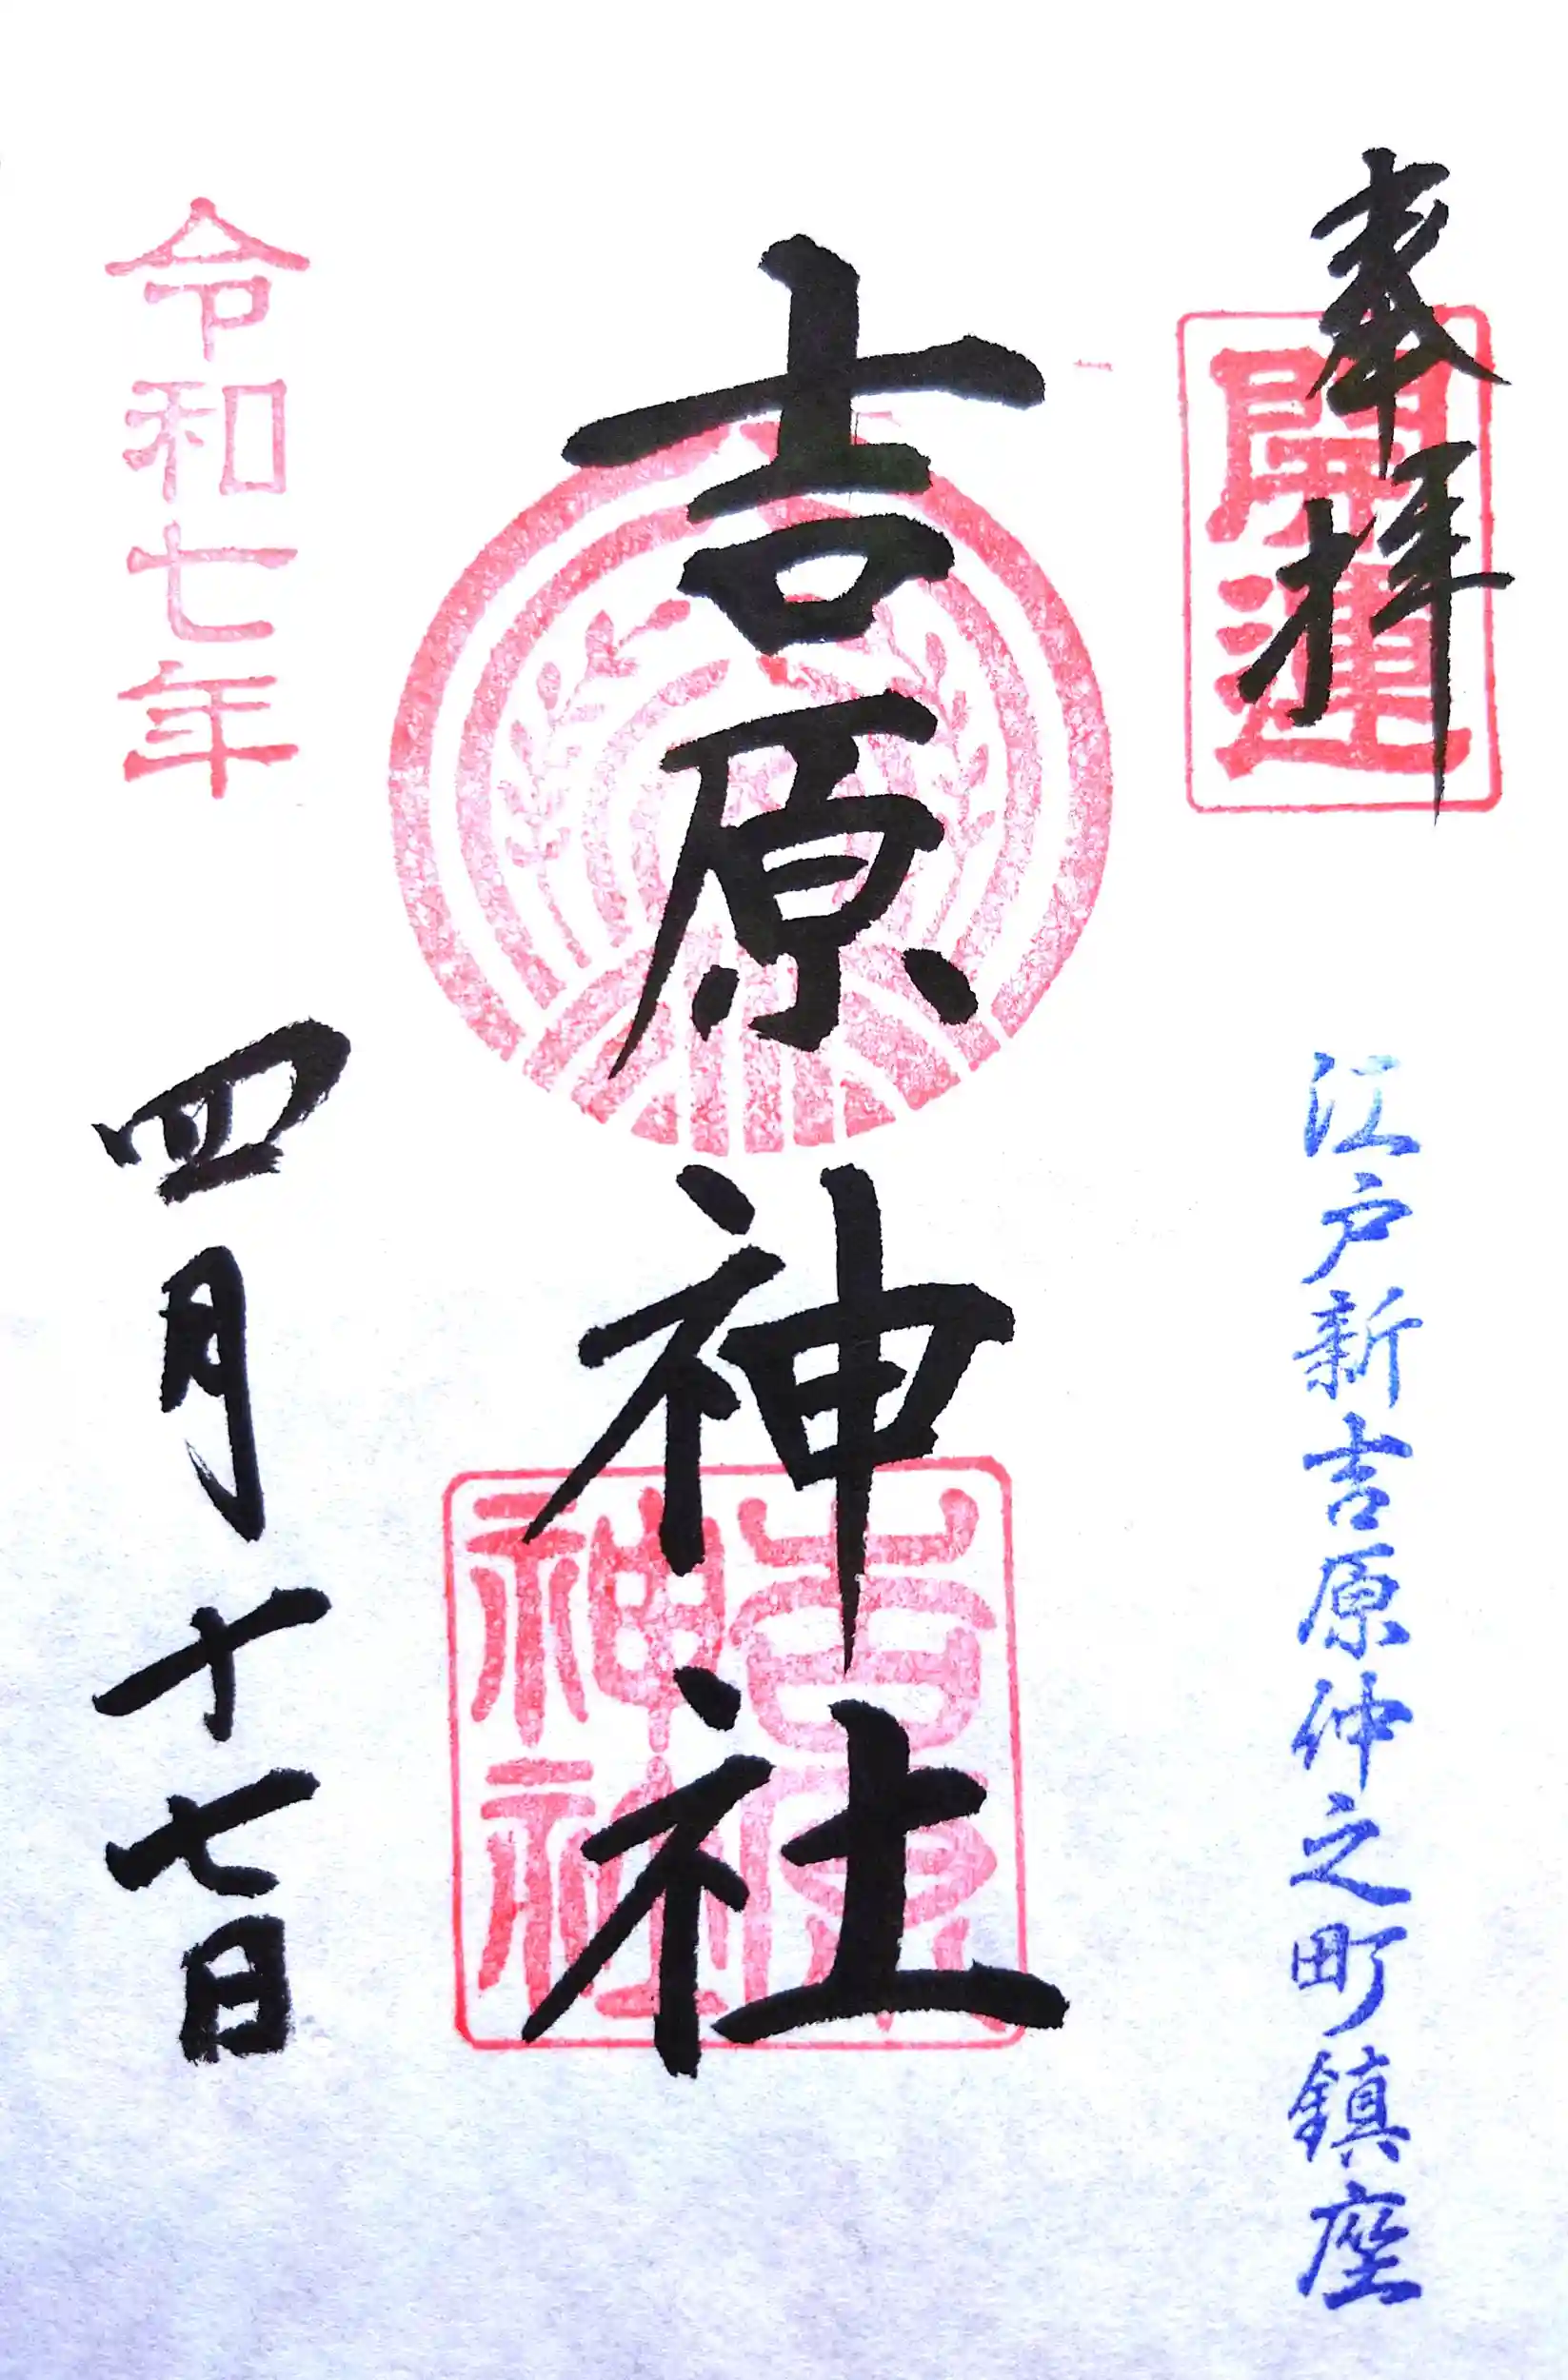 奉拝
開運
江戸新吉原仲之町鎮座
吉原神社
吉原
神社
令和七年
四月十七日